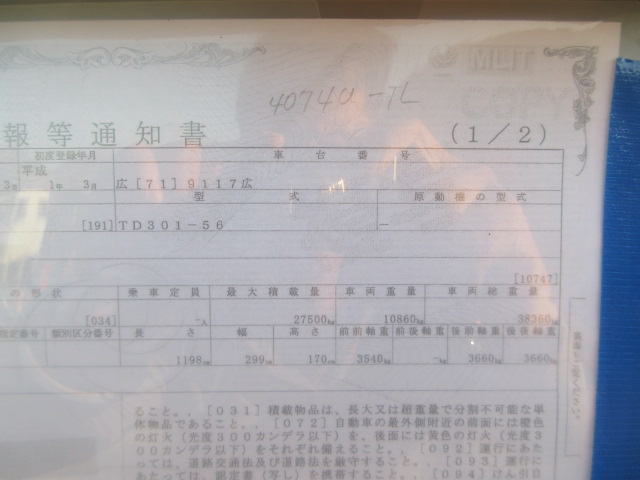 MLIT
COPY
40740-TL
報等通知書 (1/2)
初度登録年月 車台番号
平成
3日 1年 3月 広[71]9117広
型式 原動機の型式
[191] TD301-56 —
[10747]
の形状 乗車定員 最大積載量 車両重量 車両総重量
[034] -人 27500kg 10860kg 38360kg
指定番号 類別区分番号 長さ 幅 高さ 前前軸重 前後軸重 後前軸重 後後軸重
1198cm 299cm 170cm 3540kg -kg 3660kg 3660kg
ること。、[031]積載物品は、長大又は超重量で分割不可能な単
体物品であること。、[072]自動車の最外側附近の前面には橙色
の灯火(光度300カンデラ以下)を、後面には黄色の灯火(光度3
00カンデラ以下)をそれぞれ備えること。、[092]運行にあた
っては、道路交通法及び道路法を厳守すること。、[093]運行に
あたっては、認定書(写し)を携帯すること。、[094]けん引自